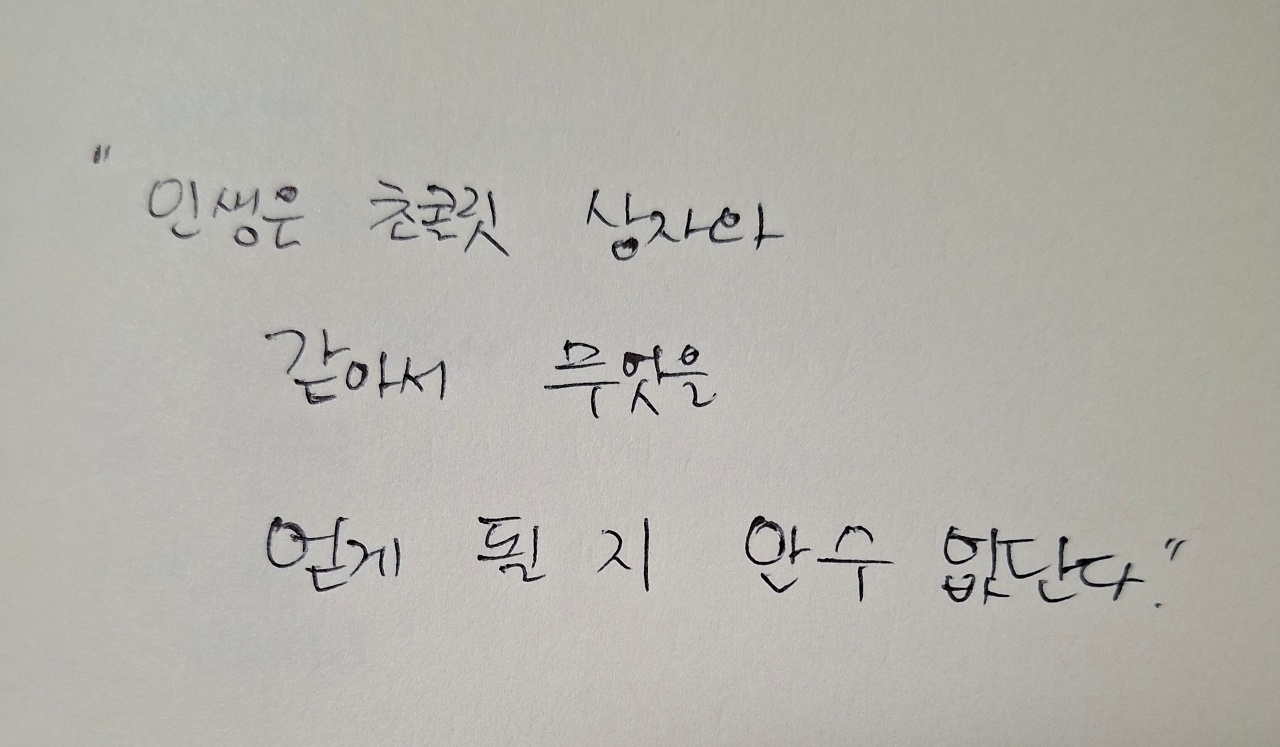 "인생은 초콜릿 상자와
같아서 무엇을
얻게 될 지 알 수 없단다."